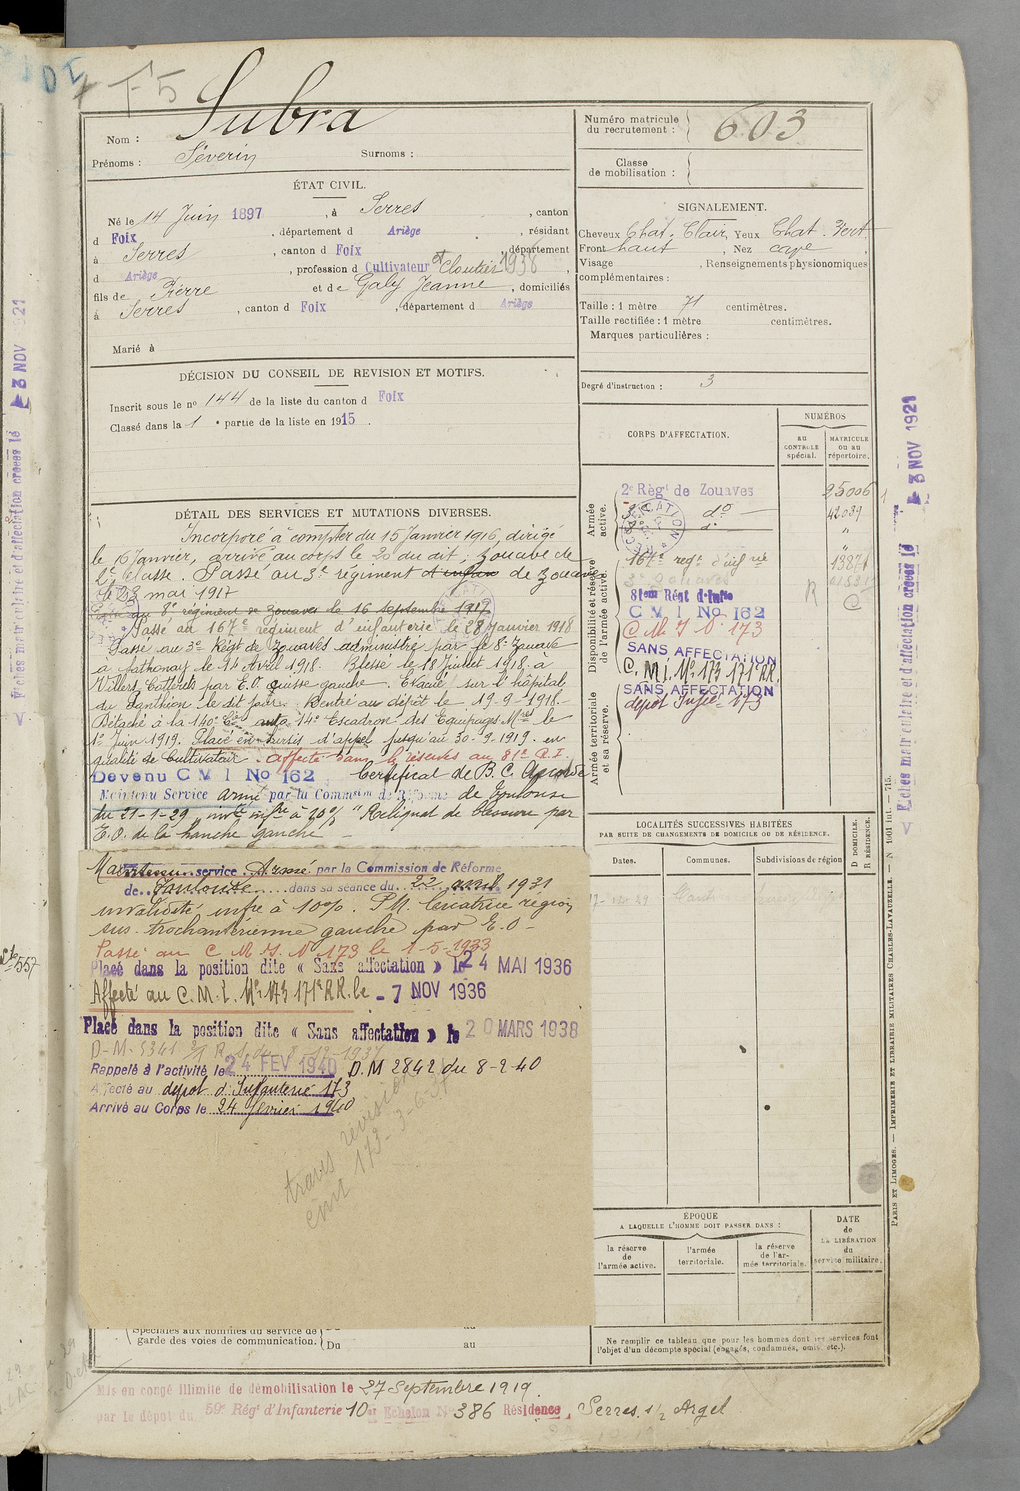 F5
Nom : Subra
Prénoms : Séverin Surnoms :
Numéro matricule du recrutement : 603
Classe de mobilisation :
ÉTAT CIVIL.
Né le 14 Juin 1897, à Serres, canton
d Foix, département d Ariège, résidant
à Serres, canton d Foix, département
d Ariège, profession d Cultivateur et Cloutier 1938,
fils de Pierre et de Galy Jeanne, domiciliés
à Serres, canton d Foix, département d Ariège
Marié à
SIGNALEMENT.
Cheveux Chat. Clair, Yeux Chat. Vert
Front haut, Nez cave
Visage , Renseignements physionomiques
complémentaires :
Taille : 1 mètre 71 centimètres.
Taille rectifiée : 1 mètre centimètres.
Marques particulières :
Degré d'instruction : 3
DÉCISION DU CONSEIL DE REVISION ET MOTIFS.
Inscrit sous le no 144 de la liste du canton d Foix
Classé dans la 1 e partie de la liste en 1915.
DÉTAIL DES SERVICES ET MUTATIONS DIVERSES.
Incorporé à compter du 15 Janvier 1916, dirigé
le 16 Janvier, arrivé au corps le 20 du dit, zouave de
2e Classe. Passé au 3e régiment d'infan de zouaves
le 23 mai 1917
au 8e régiment de zouaves le 16 septembre 1917
Passé au 167e régiment d'infanterie le 28 Janvier 1918
Passé au 3e Régt de Zouaves administré par le 8e Zouave
à Sathonay le 14 Avril 1918. Blessé le 18 Juillet 1918 à
Villers Cotterets par E.O. cuisse gauche. Evacué sur l'hôpital
du Panthéon le dit jour. Rentré au dépôt le 19-9-1918.
Détaché à la 140e Cie auto 14e Escadron des Equipages Mres le
1er Juin 1919. Placé en sursis d'appel jusqu'au 30-9-1919. en
qualité de Cultivateur. affecté dans la réserve au 81e R.I.
Devenu C M I No 162 Certificat de B.C. Accordé
Maintenu Service armé par la Commism de Réforme de Toulouse
du 21-1-29, invté infre à 10% "Reliquat de blessure par
E.O. de la hanche gauche
Maintenu service Armé par la Commission de Réforme
de Toulouse dans sa séance du 22 avril 1931
invalidité infre à 10%. P.M. Cicatrice région
sus-trochantérienne gauche par E.O-
Passé au C M I. N° 173 le 1-5-1933
Placé dans la position dite « Sans affectation » le 24 MAI 1936
Affecté au C.M.I. No 173 171e RR. le - 7 NOV 1936
Placé dans la position dite « Sans affectation » le 20 MARS 1938
Rappelé à l'activité le 24 FEV 1940 D.M 2842 du 8-2-40
Affecté au dépot d'Infanterie 173
Arrivé au Corps le 24 février 1940
trans révision
cmi 173 - 3-6-37
CORPS D'AFFECTATION.
NUMÉROS
au CONTROLE spécial.
MATRICULE ou au répertoire.
Armée active.
2e Régt de Zouaves 25006
3e do 42039
167e regt d'infrie 13871
3e Zouaves
Disponibilité et réserve de l'armée active.
81eme Régt d'Infie
C M I No 162
C M I N° 173
SANS AFFECTATION
C. M. I. No 173 171e RR.
SANS AFFECTATION
dépot Infie 173
Armée territoriale et sa réserve.
LOCALITÉS SUCCESSIVES HABITÉES
PAR SUITE DE CHANGEMENTS DE DOMICILE OU DE RÉSIDENCE.
Dates.
Communes.
Subdivisions de région
D DOMICILE.
R RÉSIDENCE.
ÉPOQUE
A LAQUELLE L'HOMME DOIT PASSER DANS :
la réserve de l'armée active.
l'armée territoriale.
la réserve de l'armée territoriale.
DATE de LA LIBÉRATION du service militaire.
spéciales aux hommes du service de
garde des voies de communication.
Du au
Ne remplir ce tableau que pour les hommes dont les services font
l'objet d'un décompte spécial (engagés, condamnés, omis, etc.).
Mis en congé illimité de démobilisation le 27 Septembre 1919.
par le dépôt du 59e Régt d'Infanterie 10e Echelon No 386 Résidence, Serres s/z Arget
Fiches matriculaire et d'affectation créées le 3 NOV 1921
Fiches matriculaire et d'affectation créées le 3 NOV 1921
PARIS ET LIMOGES. — IMPRIMERIE ET LIBRAIRIE MILITAIRES CHARLES-LAVAUZELLE.